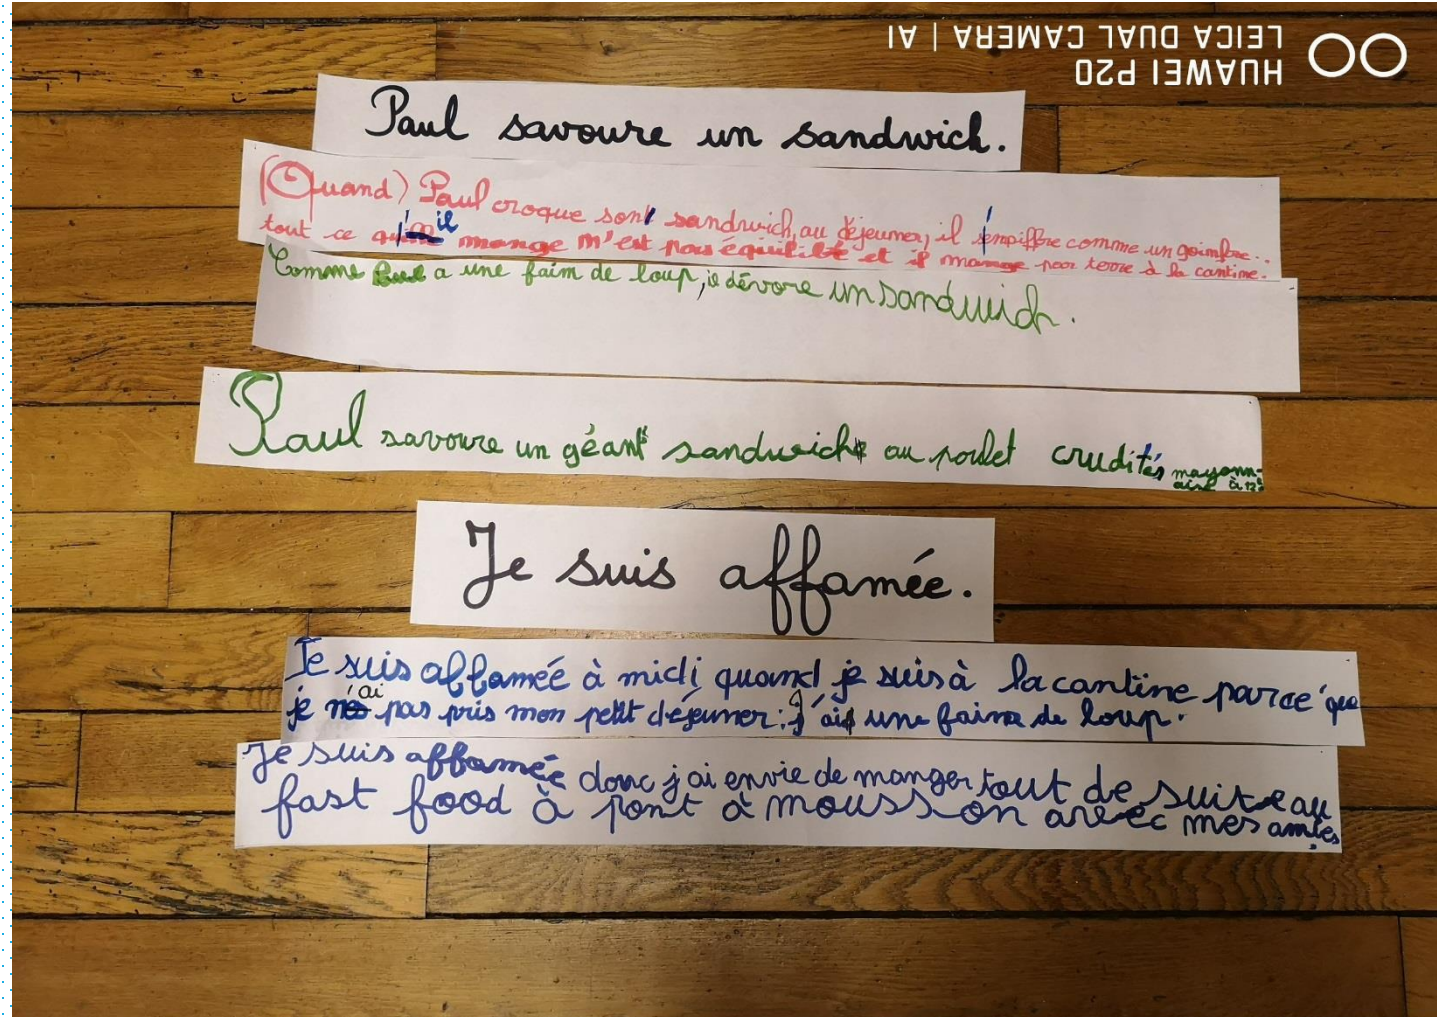 HUAWEI P20
LEICA DUAL CAMERA | AI
Paul savoure un sandwich.
(Quand) Paul croque son sandwich, au déjeuner, il s'empiffre comme un goinfre..
tout ce qu'il mange n'est pas équilibé et il mange par terre à la cantine.
Comme Paul a une faim de loup, je dévore un sandwich.
Paul savoure un géant sandwich au poulet crudités mayonn-
aise à 12
Je suis affamée.
Je suis affamée à midi quand je suis à la cantine parce que
je n'ai pas pris mon petit déjeuner: j'ai une faim de loup.
Je suis affamée donc j'ai envie de manger tout de suite au
fast food à pont à mousson avec mes amies